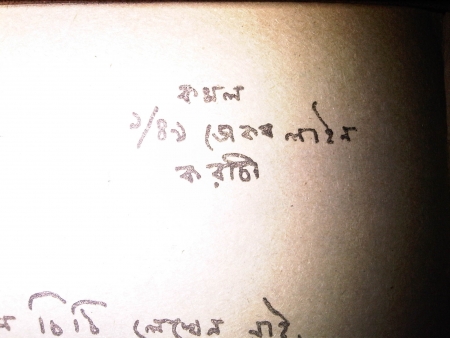 কমল
১/৪১ জেকব লাইন
করাচী
ন চিঠি লেখেন নাই.